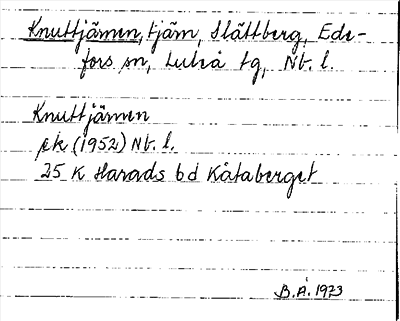 Knuttjämen, tjäm, Slättberg, Ede-
fors sn, Luleå tg, Nb. l.
Knuttjämen
ek (1952) Nb. l.
25 K Harads bd Kåtaberget
B.Å. 1973